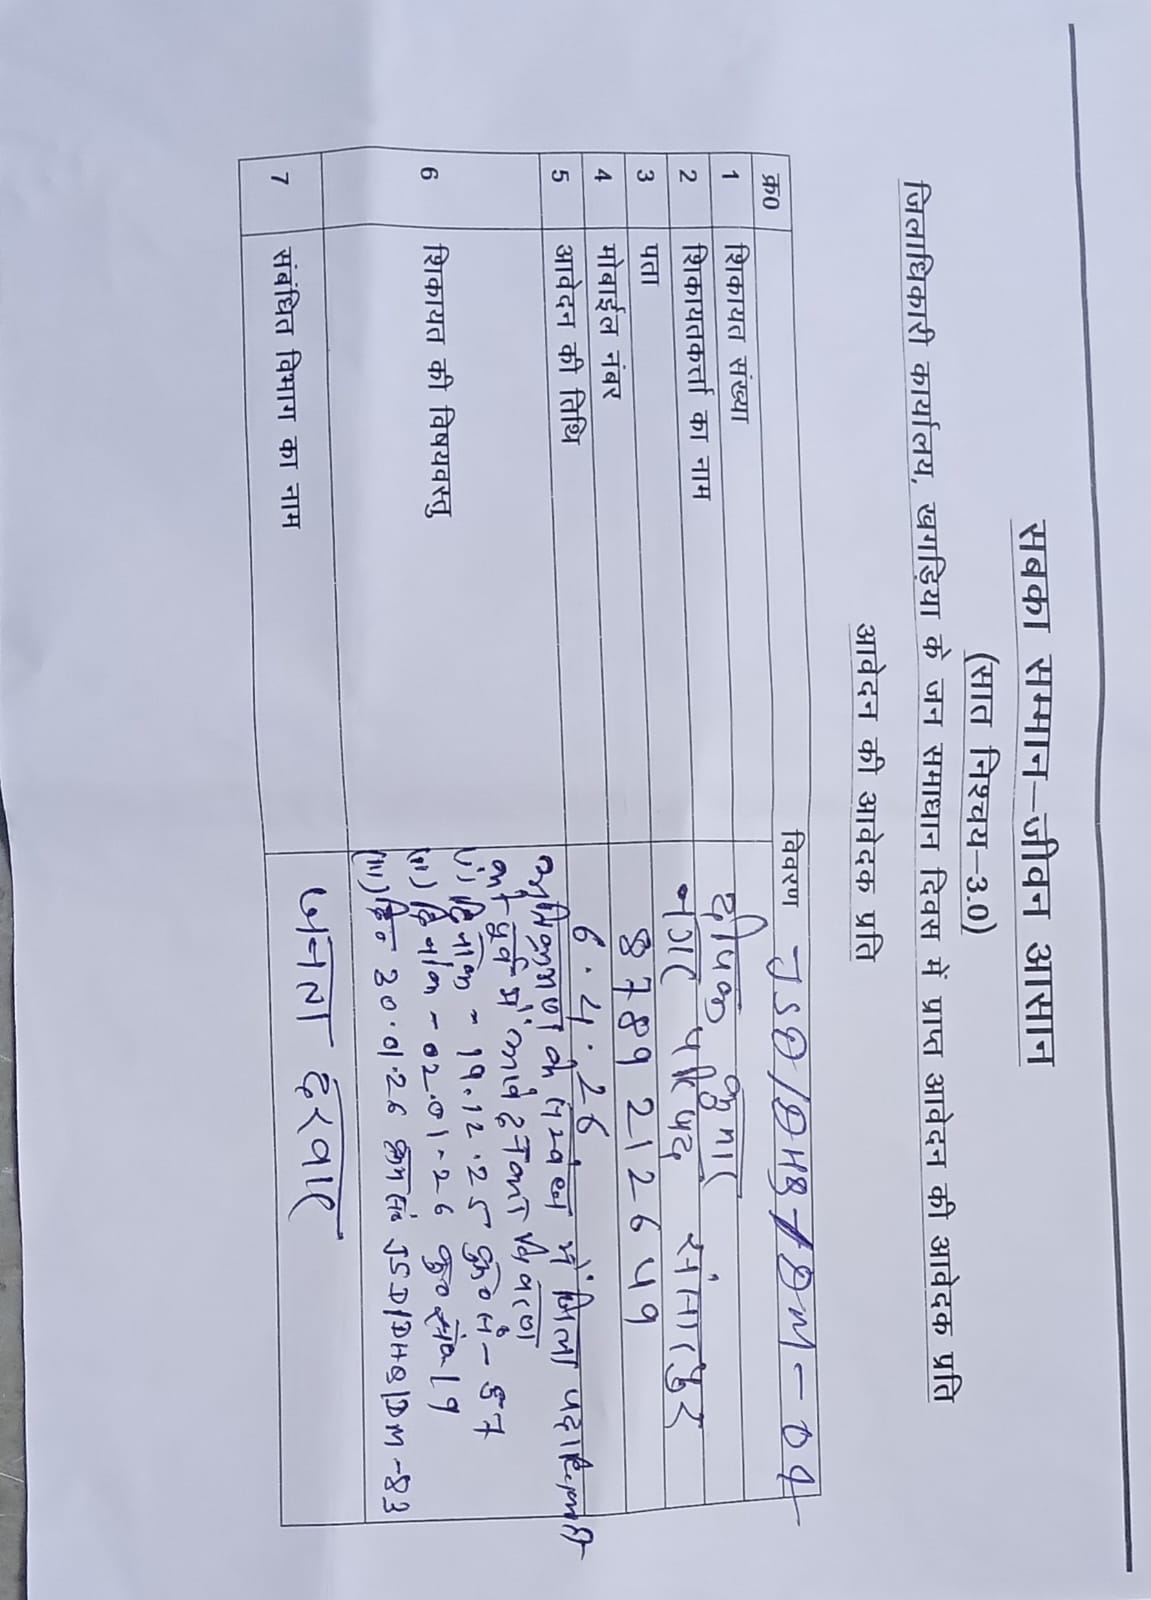 सबका सम्मान–जीवन आसान
(सात निश्चय–3.0)
जिलाधिकारी कार्यालय, खगड़िया के जन समाधान दिवस में प्राप्त आवेदन की आवेदक प्रति
आवेदन की आवेदक प्रति
क्र0 विवरण
1 शिकायत संख्या JSD/DHQ/DM-09
2 शिकायतकर्ता का नाम दीपक कुमार
3 पता नगर परिषद
4 मोबाईल नंबर 8789212649
5 आवेदन की तिथि 6.4.26
6 शिकायत की विषयवस्तु अतिक्रमण के संबंध में जिला पदाधिकारी
पूर्व में आवेदन का विवरण
(i) दिनांक - 19.12.25 क्र0 सं - 57
(ii) दिनांक - 02.01.26 क्र0 सं0 19
(iii) दि0 30.01.26 क्रम सं0 JSD/DHQ/DM-83
7 संबंधित विभाग का नाम जनता दरबार